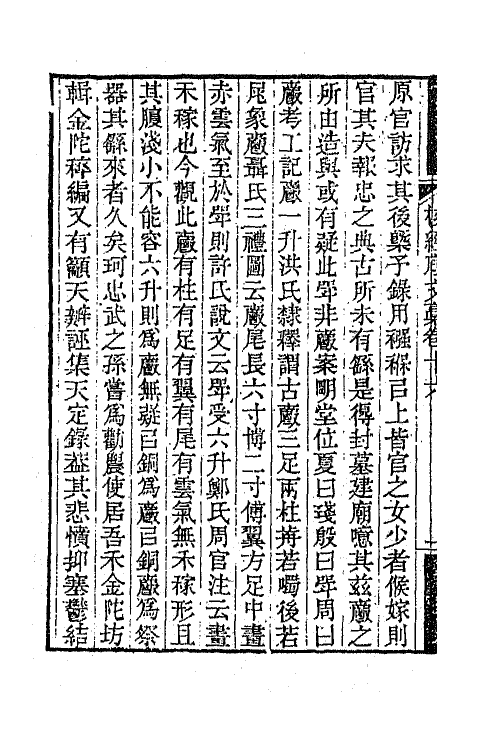 原官訪求其後槩予錄用襁褓㠯上皆官之女少者候嫁則
官其夫報忠之典古所未有繇是得封墓建廟噫其茲爵之
所由造與或有疑此斝非爵案明堂位夏曰琖殷曰斝周曰
爵考工記爵一升洪氏隸釋謂古爵三足兩柱歬若噣後若
尾象爵聶氏三禮圖云爵尾長六寸博二寸傅翼方足中畫
赤雲氣至於斝則許氏說文云斝受六升鄭氏周官注云畫
禾稼也今觀此爵有柱有足有翼有尾有雲氣無禾稼形且
其腹淺小不能容六升則爲爵無疑㠯銅爲爵㠯銅爵爲祭
器其繇來者久矣珂忠武之孫嘗爲勸農使居吾禾金陀坊
輯金陀稡編又有籲天辨誣集天定錄葢其悲憤抑塞鬱結
校經廎文稾卷十六